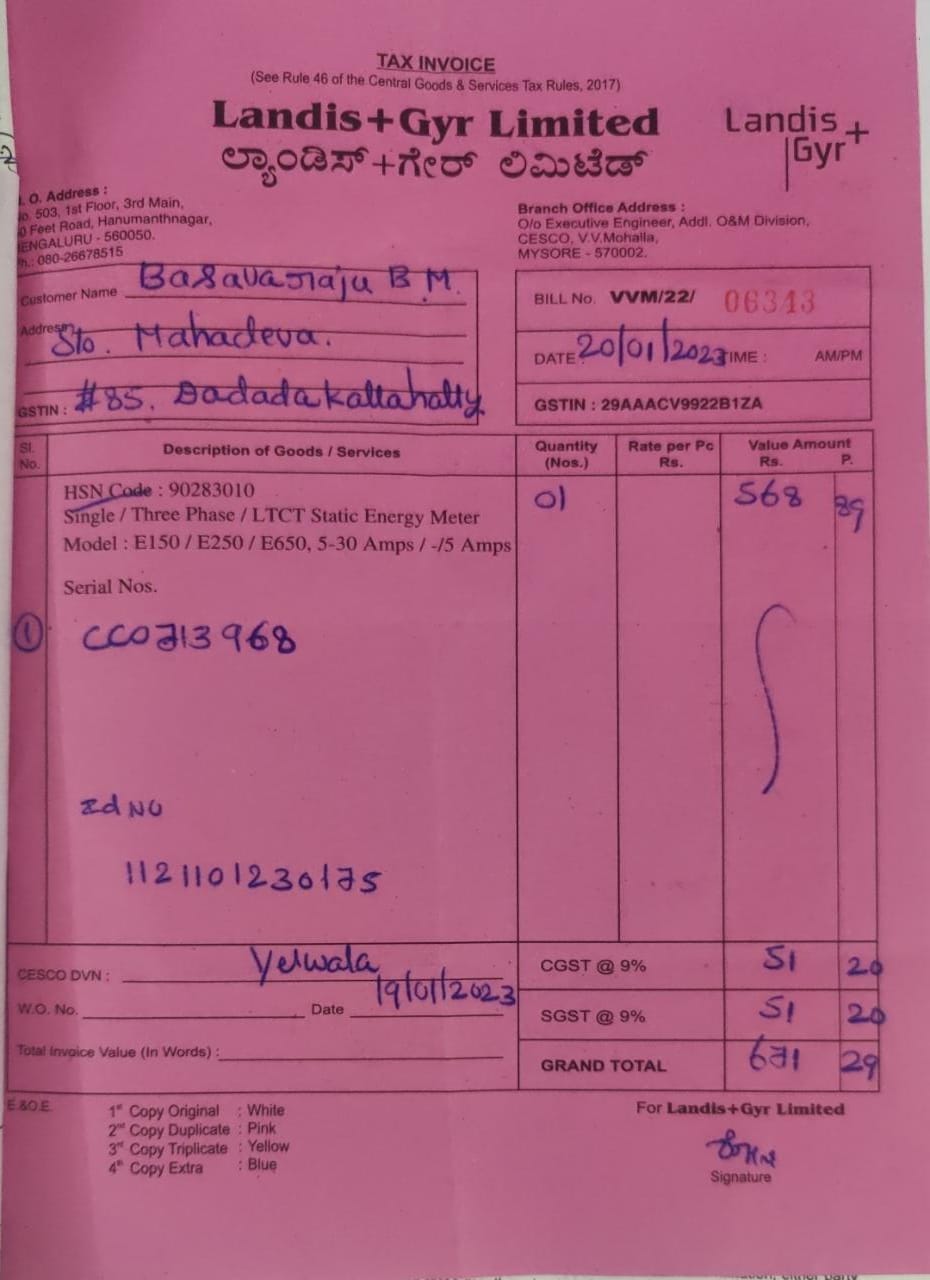 TAX INVOICE
(See Rule 46 of the Central Goods & Services Tax Rules, 2017)
Landis+Gyr Limited
ಲ್ಯಾಂಡಿಸ್+ಗೇರ್ ಲಿಮಿಟೆಡ್
Landis
Gyr+
. O. Address :
o. 503, 1st Floor, 3rd Main,
0 Feet Road, Hanumanthnagar,
ENGALURU - 560050.
h.: 080-26678515
Branch Office Address :
O/o Executive Engineer, Addl. O&M Division,
CESCO, V.V.Mohalla,
MYSORE - 570002.
Customer Name Basavaraju B M.
Address S/o. Mahadeva.
GSTIN : #85. Dadadakallahally
BILL No. VVM/22/ 06343
DATE 20/01/2023 TIME : AM/PM
GSTIN : 29AAACV9922B1ZA
Sl. No. Description of Goods / Services Quantity (Nos.) Rate per Pc Rs. Value Amount Rs. P.
HSN Code : 90283010 01 568 89
Single / Three Phase / LTCT Static Energy Meter
Model : E150 / E250 / E650, 5-30 Amps / -/5 Amps
Serial Nos.
1 CC0713968
Id No
1121101230175
CESCO DVN : Yelwala
W.O. No. Date 19/01/2023
Total Invoice Value (In Words) :
CGST @ 9% 51 20
SGST @ 9% 51 20
GRAND TOTAL 671 29
E.&O.E.
1st Copy Original : White
2nd Copy Duplicate : Pink
3rd Copy Triplicate : Yellow
4th Copy Extra : Blue
For Landis+Gyr Limited
Signature